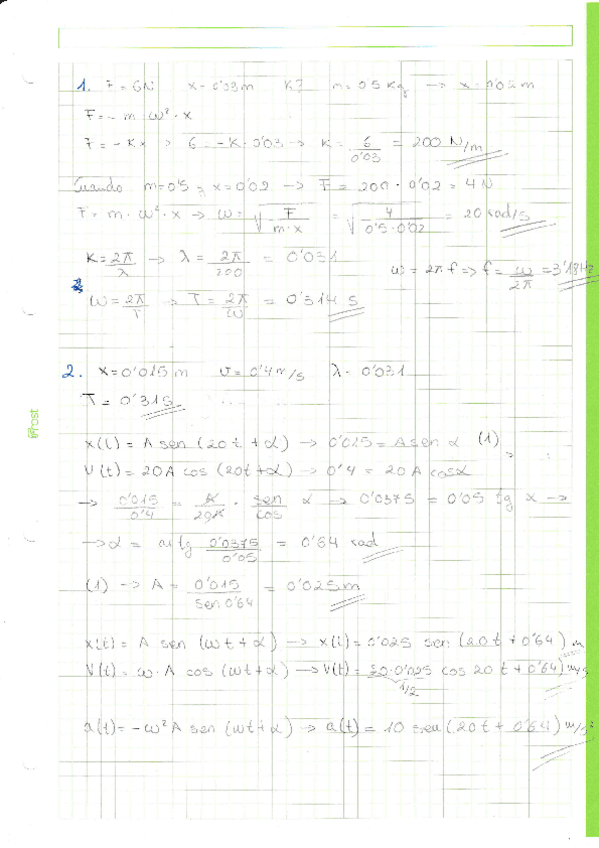 1. F = 6N x = 0'03m K? m = 0'5 Kg → x = 0'02 m
F = - m · ω² · x
F = - Kx → 6 = -K · 0'03 → K = 6/0'03 = 200 N/m
Cuando m = 0'5 ; x = 0'02 → F = 200 · 0'02 = 4 N
F = m · ω² · x → ω = √(F/(m·x)) = √(4/(0'5·0'02)) = 20 rad/s
K = 2π/λ → λ = 2π/200 = 0'031
ω = 2π f => f = ω/2π = 3'18Hz
ω = 2π/T → T = 2π/ω = 0'314 s
2. x = 0'015 m v = 0'4 m/s λ = 0'031
T = 0'315
x(t) = A sen (20t + α) → 0'015 = A sen α (1)
V(t) = 20A cos (20t + α) → 0'4 = 20 A cosα
→ 0'015/0'4 = A/20A · sen/cos α → 0'0375 = 0'05 tg α →
→ α = arctg 0'0375/0'05 = 0'64 rad
(1) → A = 0'015/sen 0'64 = 0'025m
x(t) = A sen (ωt + α) → x(t) = 0'025 sen (20t + 0'64) m
V(t) = ω · A cos (ωt + α) → V(t) = 20·0'025 cos 20t + 0'64) m/s
1/2
a(t) = -ω²A sen (ωt + α) → a(t) = 10 sen (20t + 0'64) m/s²